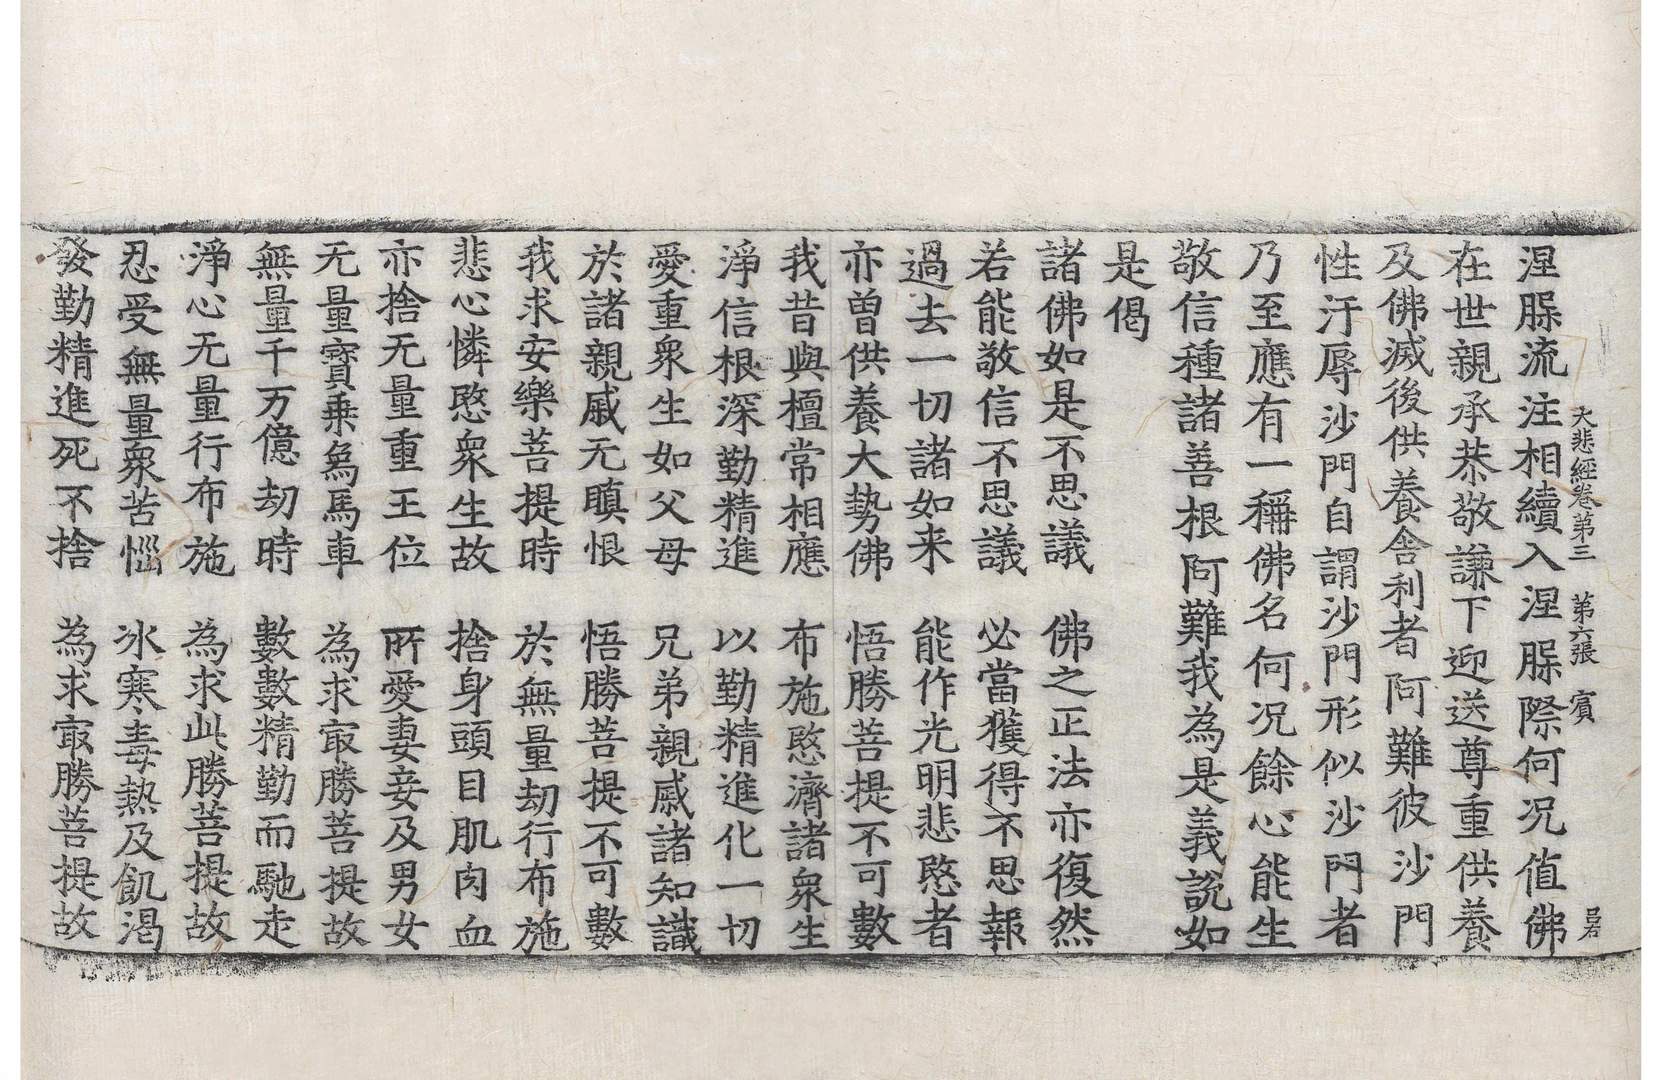 大悲經卷第三 第六張 賓
涅槃流注相續入涅槃際何况值佛
在世親承恭敬謙下迎送尊重供養
及佛滅後供養舍利者阿難彼沙門
性汙辱沙門自謂沙門形似沙門者
乃至應有一稱佛名何况餘心能生
敬信種諸善根阿難我為是義說如
是偈
諸佛如是不思議 佛之正法亦復然
若能敬信不思議 必當獲得不思報
過去一切諸如来 能作光明悲愍者
亦曾供養大勢佛 悟勝菩提不可數
我昔與檀常相應 布施愍濟諸衆生
淨信根深勤精進 以勤精進化一切
愛重衆生如父母 兄弟親戚諸知識
於諸親戚无瞋恨 悟勝菩提不可數
我求安樂菩提時 於無量劫行布施
悲心憐愍衆生故 捨身頭目肌肉血
亦捨无量重王位 所愛妻妾及男女
无量寶乗象馬車 為求㝡勝菩提故
無量千万億劫時 數數精勤而馳走
淨心无量行布施 為求此勝菩提故
忍受無量衆苦惱 冰寒毒熱及飢渇
發勤精進死不捨 為求㝡勝菩提故